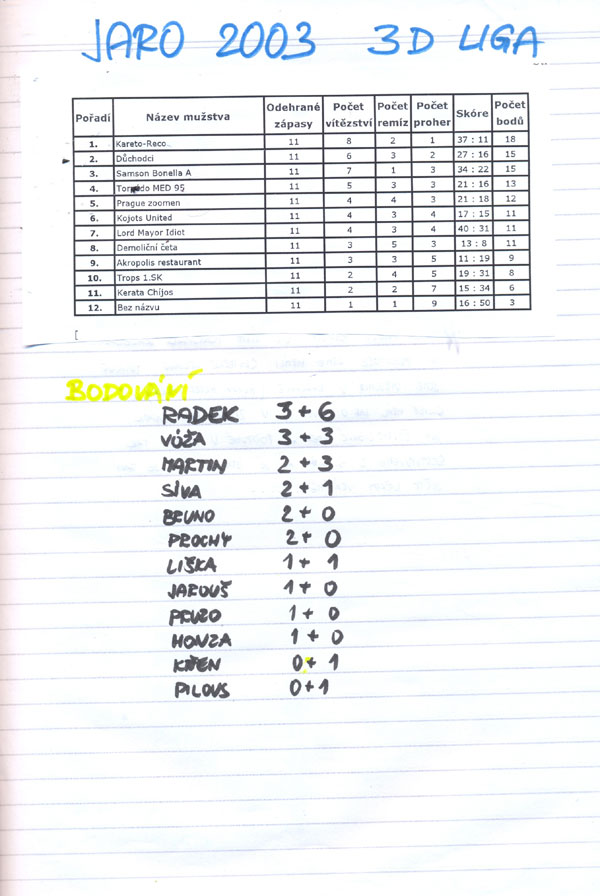 JARO 2003 3D LIGA
Pořadí Název mužstva Odehrané zápasy Počet vítězství Počet remíz Počet proher Skóre Počet bodů
1. Kareto-Reco 11 8 2 1 37 : 11 18
2. Důchodci 11 6 3 2 27 : 16 15
3. Samson Bonella A 11 7 1 3 34 : 22 15
4. Tornádo MED 9Ş 11 5 3 3 21 : 16 13
5. Prague zoomen 11 4 4 3 21 : 18 12
6. Kojots United 11 4 3 4 17 : 15 11
7. Lord Mayor Idiot 11 4 3 4 40 : 31 11
8. Demoliční četa 11 3 5 3 13 : 8 11
9. Akropolis restaurant 11 3 3 5 11 : 19 9
10. Trops 1.SK 11 2 4 5 19 : 31 8
11. Kerata Chijos 11 2 2 7 15 : 34 6
12. Bez názvu 11 1 1 9 16 : 50 3
BODOVÁNÍ
RADEK 3+6
VÓŽA 3+3
MARTIN 2+3
SÍVA 2+1
BRUNO 2+0
PROCHY 2+0
LIŠKA 1+1
JAROUŠ 1+0
1+0
HONZA 1+0
KŘEN 0+1
PILOUS 0+1